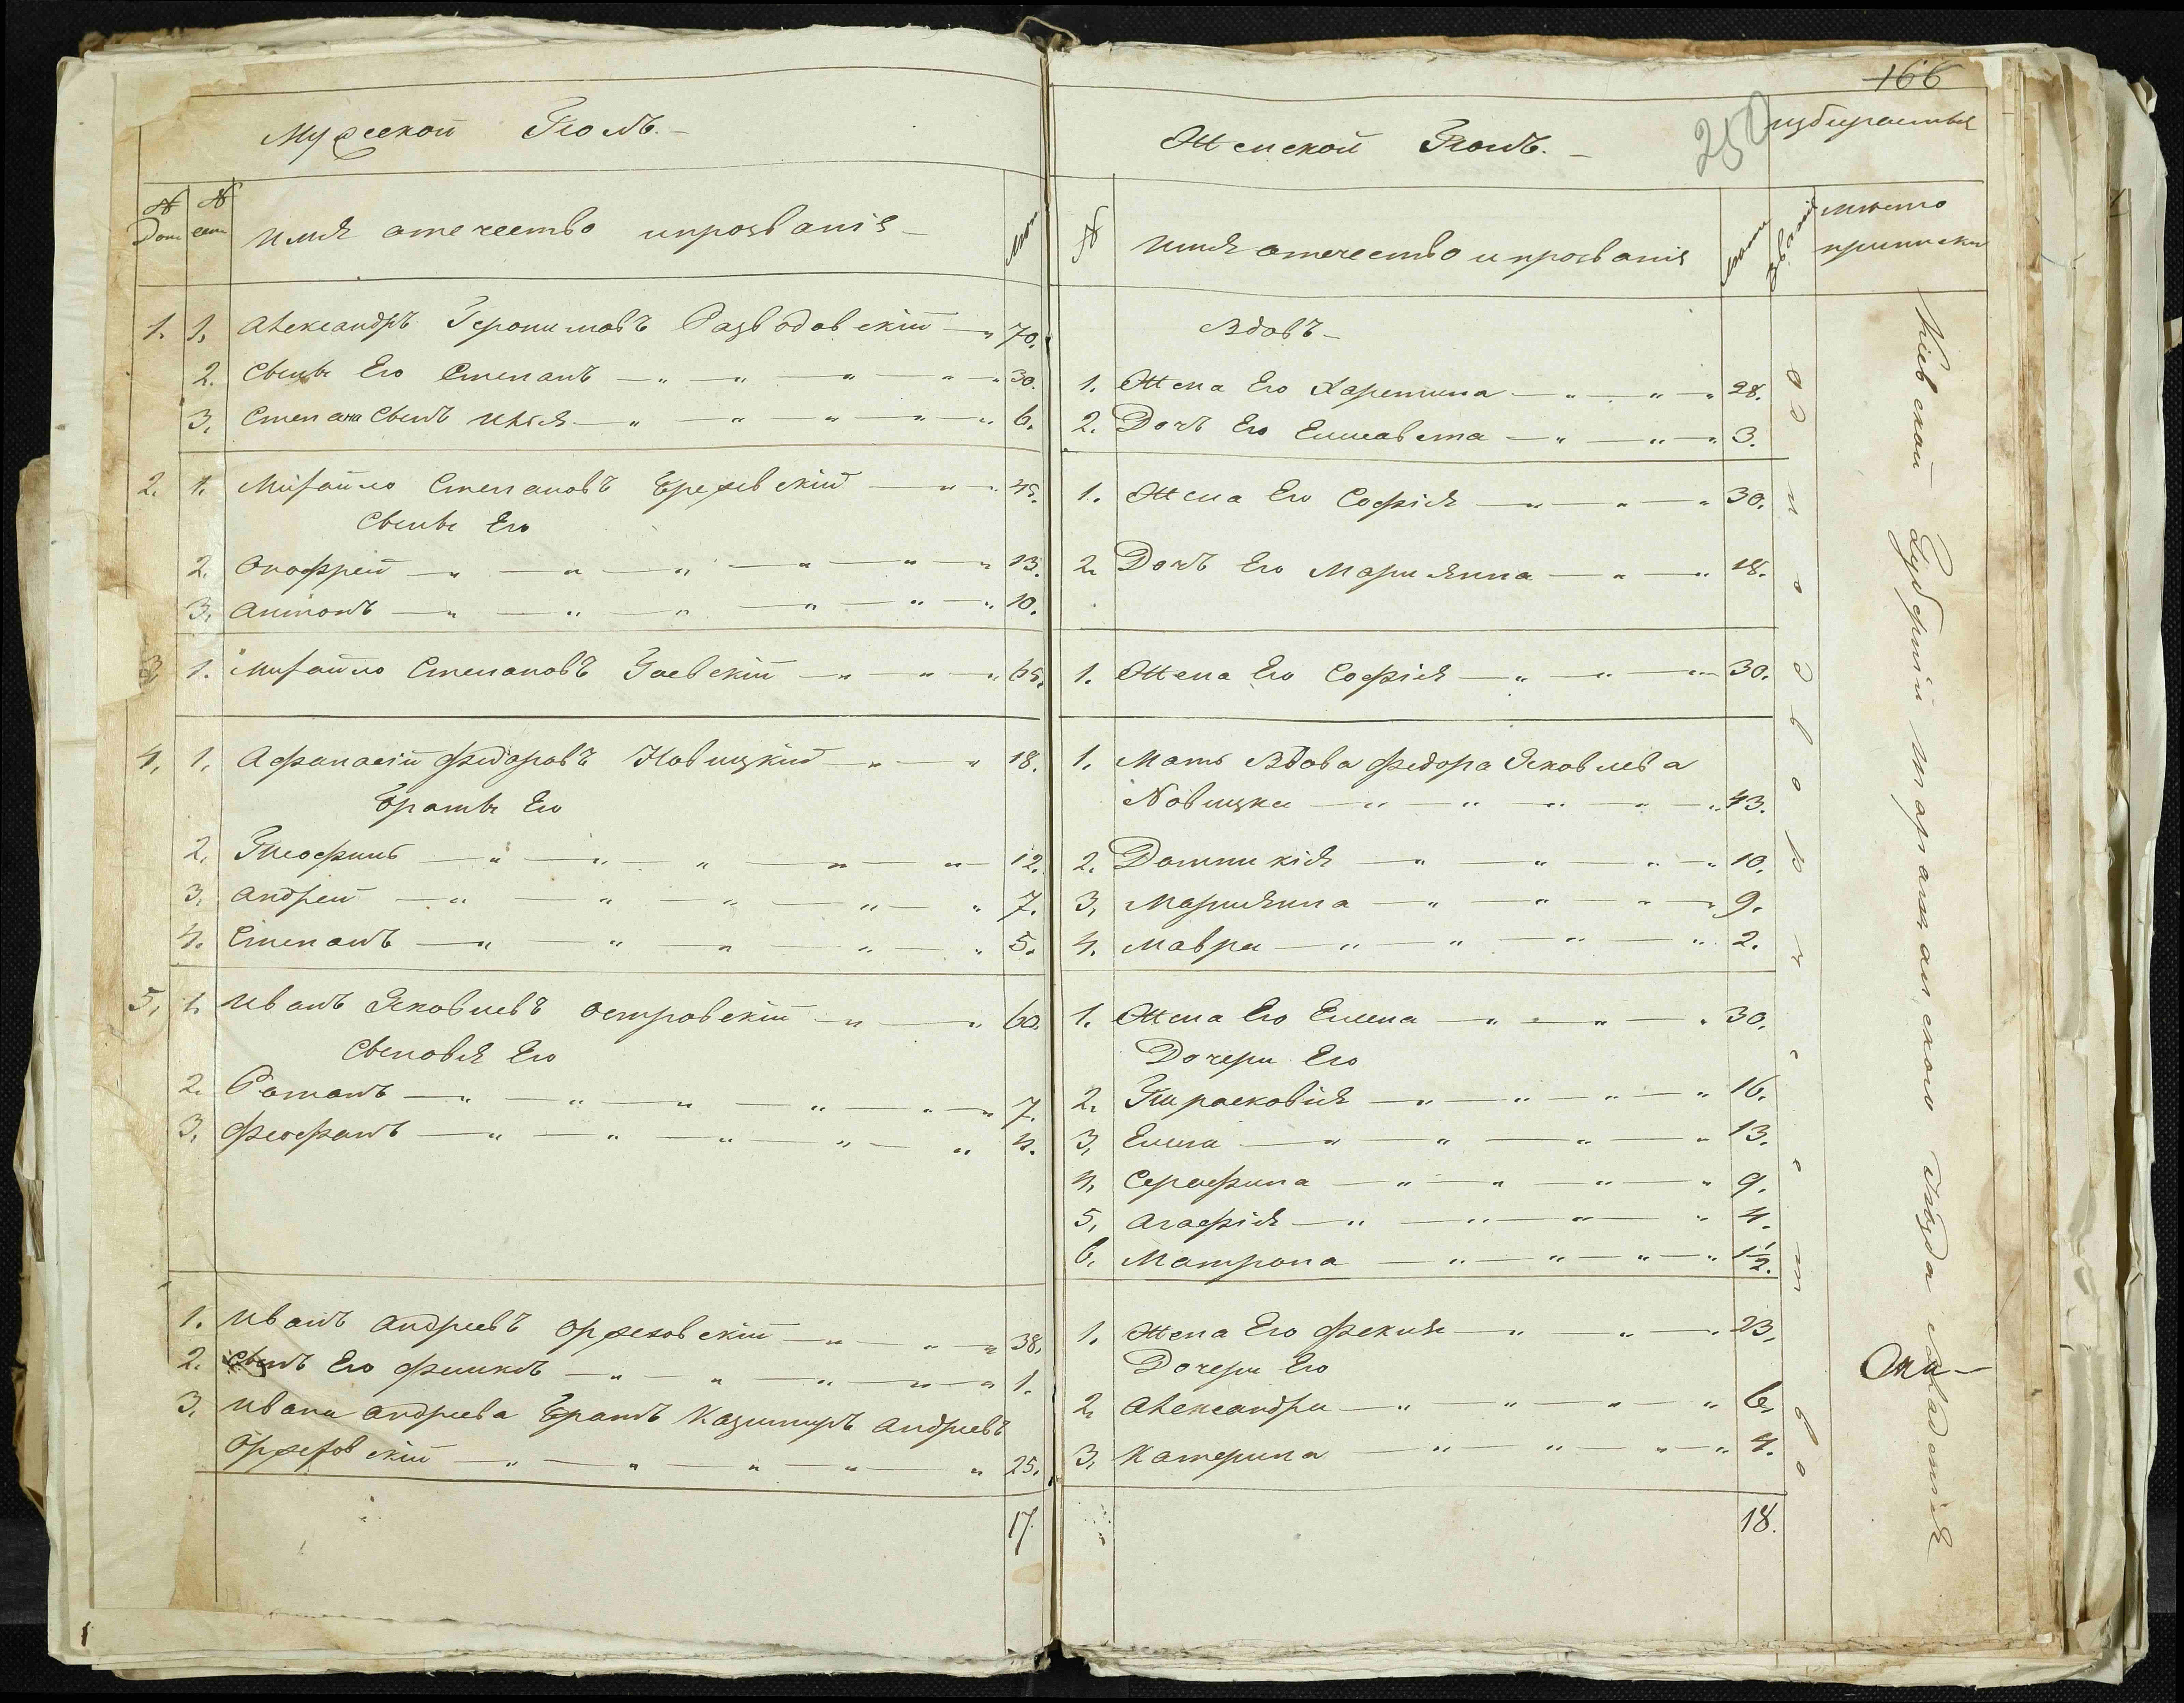 Мужеской Полъ.-
№ Дом
№ сем
Имя отечество и прозванія -
лета
1. 1. Александръ Геронимовъ Разводовскій — " 70.
2. Сынъ Его Степанъ — " — " — " — " 30.
3. Степана Сынъ Илья — " — " — " — " 6.
2. 1. Михайло Степановъ Бржевскій — " — " 45.
Сыны Его
2. Онофрей — " — " — " — " — " 13.
3. Антонъ — " — " — " — " — " 10.
3 1. Михайло Степановъ Заевскій — " — " 65.
4. 1. Афанасій Федоровъ Новицкий — " — " 18.
Братья Его
2. Теофилъ — " — " — " — " — " 12.
3. Андрей — " — " — " — " — " 7.
4. Степанъ — " — " — " — " — " 5.
5. 1. Иванъ Яковлевъ Островскій — " — " 60.
Сыновья Его
2. Романъ — " — " — " — " — " 7.
3. Феофанъ — " — " — " — " — " 4.
1. Иванъ Андреевъ Оржеховскій — " — " — " 38.
2. Сынъ Его Феликсъ — " — " — " — " 1.
3. Ивана Андреева Братъ Казимиръ Андреевъ
Оржеховскій — " — " — " — " — " 25.
17.
166
250
Женской Полъ.-
избираться
№
Имя отечество и прозванія
лета
Званія
место приписки
Вдовъ -
1. Жена Его Харетина — " — " 28.
2. Дочь Его Елисавета — " — " 3.
1. Жена Его Софія — " — " — " 30.
2. Дочь Его Марьянна — " — " 18.
1. Жена Его Софія — " — " — " 30.
1. Мать Вдова Федора Яковлева
Новицка — " — " — " — " 43.
2. Домникія — " — " — " 10.
3. Марьянна — " — " — " 9.
4. Мавра — " — " — " — " 2.
1. Жена Его Елена — " — " — " 30.
Дочери Его
2. Параскевія — " — " — " — " 16.
3. Елена — " — " — " — " 13.
4. Серафина — " — " — " — " 9.
5. Агафія — " — " — " — " 4.
6. Матрона — " — " — " — " 1½.
1. Жена Его Фекла — " — " — " 23.
Дочери Его
2. Александра — " — " — " — " 6.
3. Катерина — " — " — " — " 4.
18.
Однодворчество
Кіевской Губерніи Таращанского Уезда